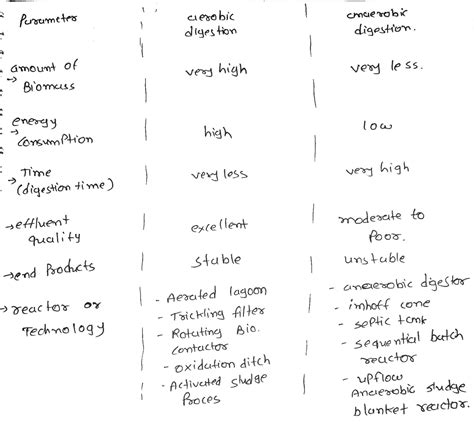 Parameter | aerobic digestion | anaerobic digestion.
amount of → Biomass | very high | very less.
energy → Consumption | high | low
→ Time (digestion time) | very less | very high
→ effluent quality | excellent | moderate to Poor.
→ end Products | Stable | unstable
→ reactor or Technology
- Aerated lagoon
- Trickling filter
- Rotating Bio. contactor
- oxidation ditch
- Activated sludge Proces
- anaerobic digestor
- imhoff cone
- septic tank
- sequential batch reactor
- upflow Anaerobic sludge blanket reactor.